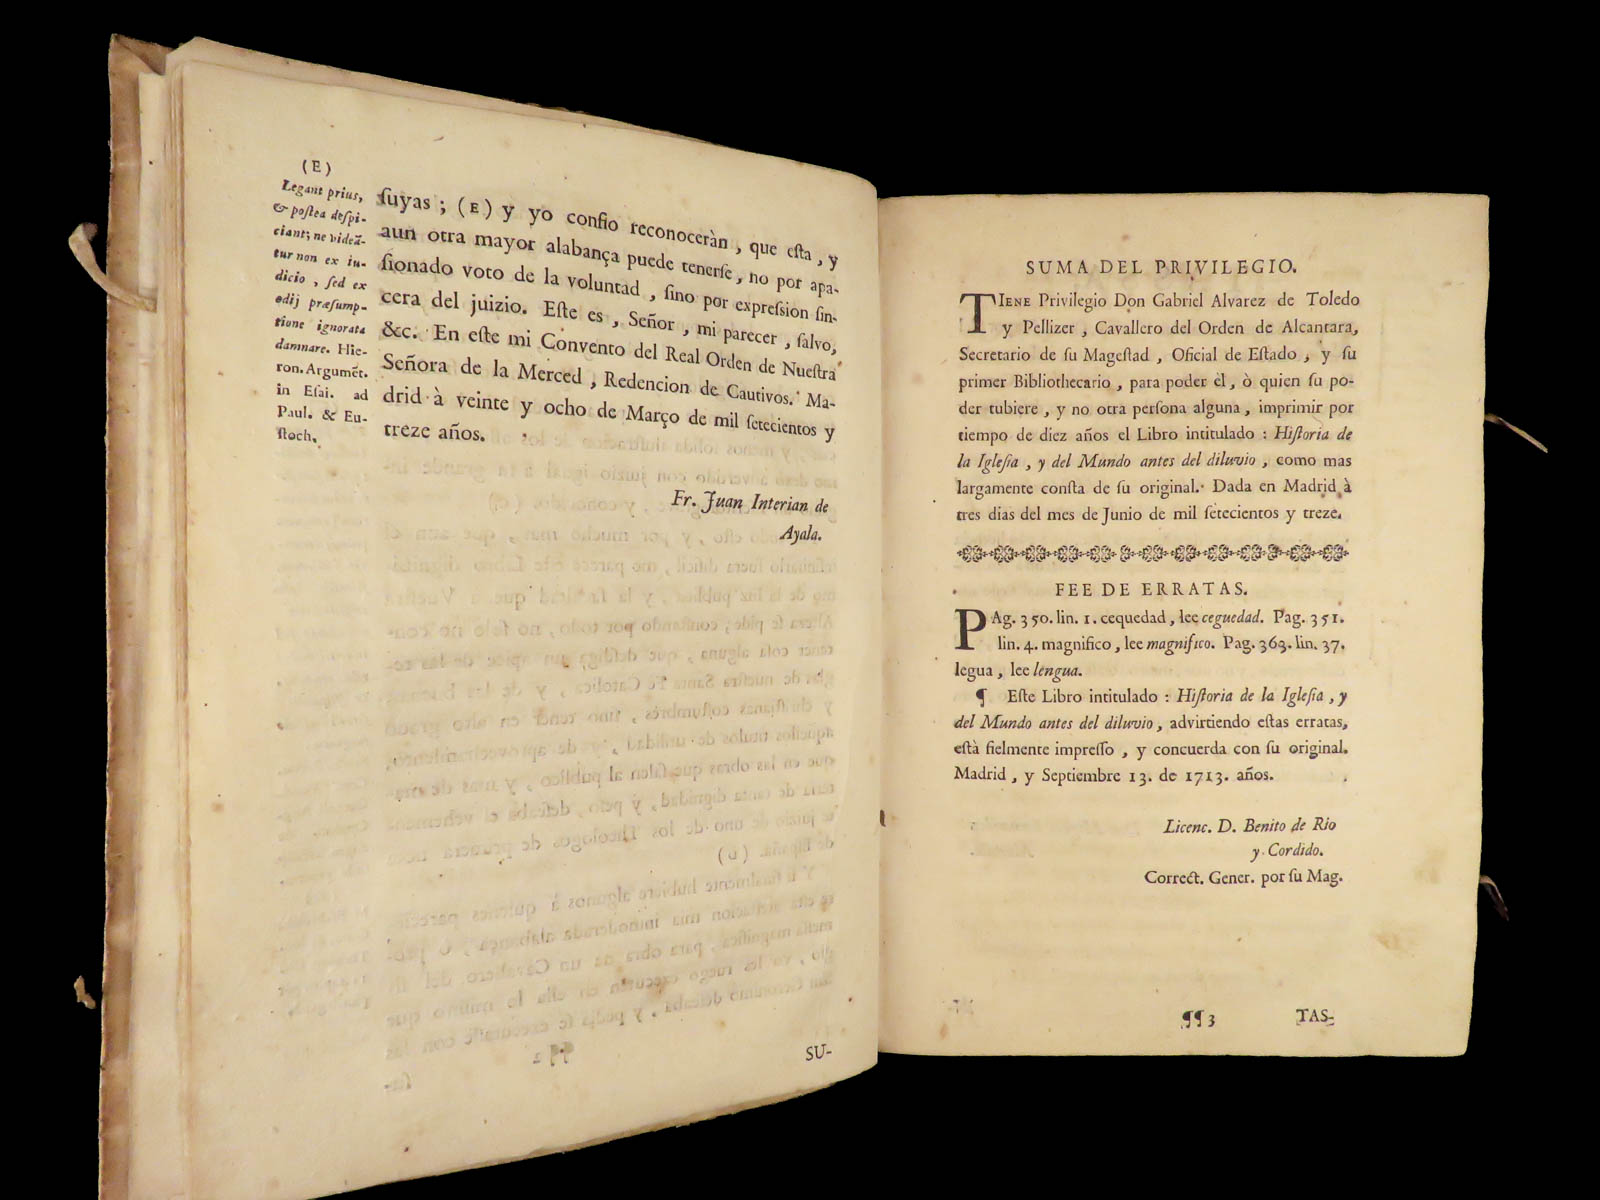 (E)
Legant prius,
& poſtea deſpi-
ciant; ne videã-
tur non ex iu-
dicio, ſed ex
odij præſump-
tione ignorata
damnare. Hie-
ron. Argumẽt.
in Eſai. ad
Paul. & Eu-
ſtoch.
ſuyas; (E) y yo confio reconoceràn, que eſta, y
aun otra mayor alabança puede tenerſe, no por apa-
ſionado voto de la voluntad, ſino por expreſsion ſin-
cera del juizio. Eſte es, Señor, mi parecer, ſalvo,
&c. En eſte mi Convento del Real Orden de Nueſtra
Señora de la Merced, Redencion de Cautivos. Ma-
drid à veinte y ocho de Março de mil ſetecientos y
treze años.
Fr. Juan Interian de
Ayala.
SU-
SUMA DEL PRIVILEGIO.
TIENE Privilegio Don Gabriel Alvarez de Toledo
y Pellizer, Cavallero del Orden de Alcantara,
Secretario de ſu Mageſtad, Oficial de Eſtado, y ſu
primer Bibliothecario, para poder èl, ò quien ſu po-
der tubiere, y no otra perſona alguna, imprimir por
tiempo de diez años el Libro intitulado: Hiſtoria de
la Igleſia, y del Mundo antes del diluvio, como mas
largamente conſta de ſu original. Dada en Madrid à
tres dias del mes de Junio de mil ſetecientos y treze.
FEE DE ERRATAS.
PAg. 350. lin. 1. cequedad, lee ceguedad. Pag. 351.
lin. 4. magnifico, lee magnifico. Pag. 363. lin. 37.
legua, lee lengua.
¶ Eſte Libro intitulado: Hiſtoria de la Igleſia, y
del Mundo antes del diluvio, advirtiendo eſtas erratas,
eſtà fielmente impreſſo, y concuerda con ſu original.
Madrid, y Septiembre 13. de 1713. años.
Licenc. D. Benito de Rio
y Cordido.
Correct. Gener. por ſu Mag.
¶¶ 3
TAS-